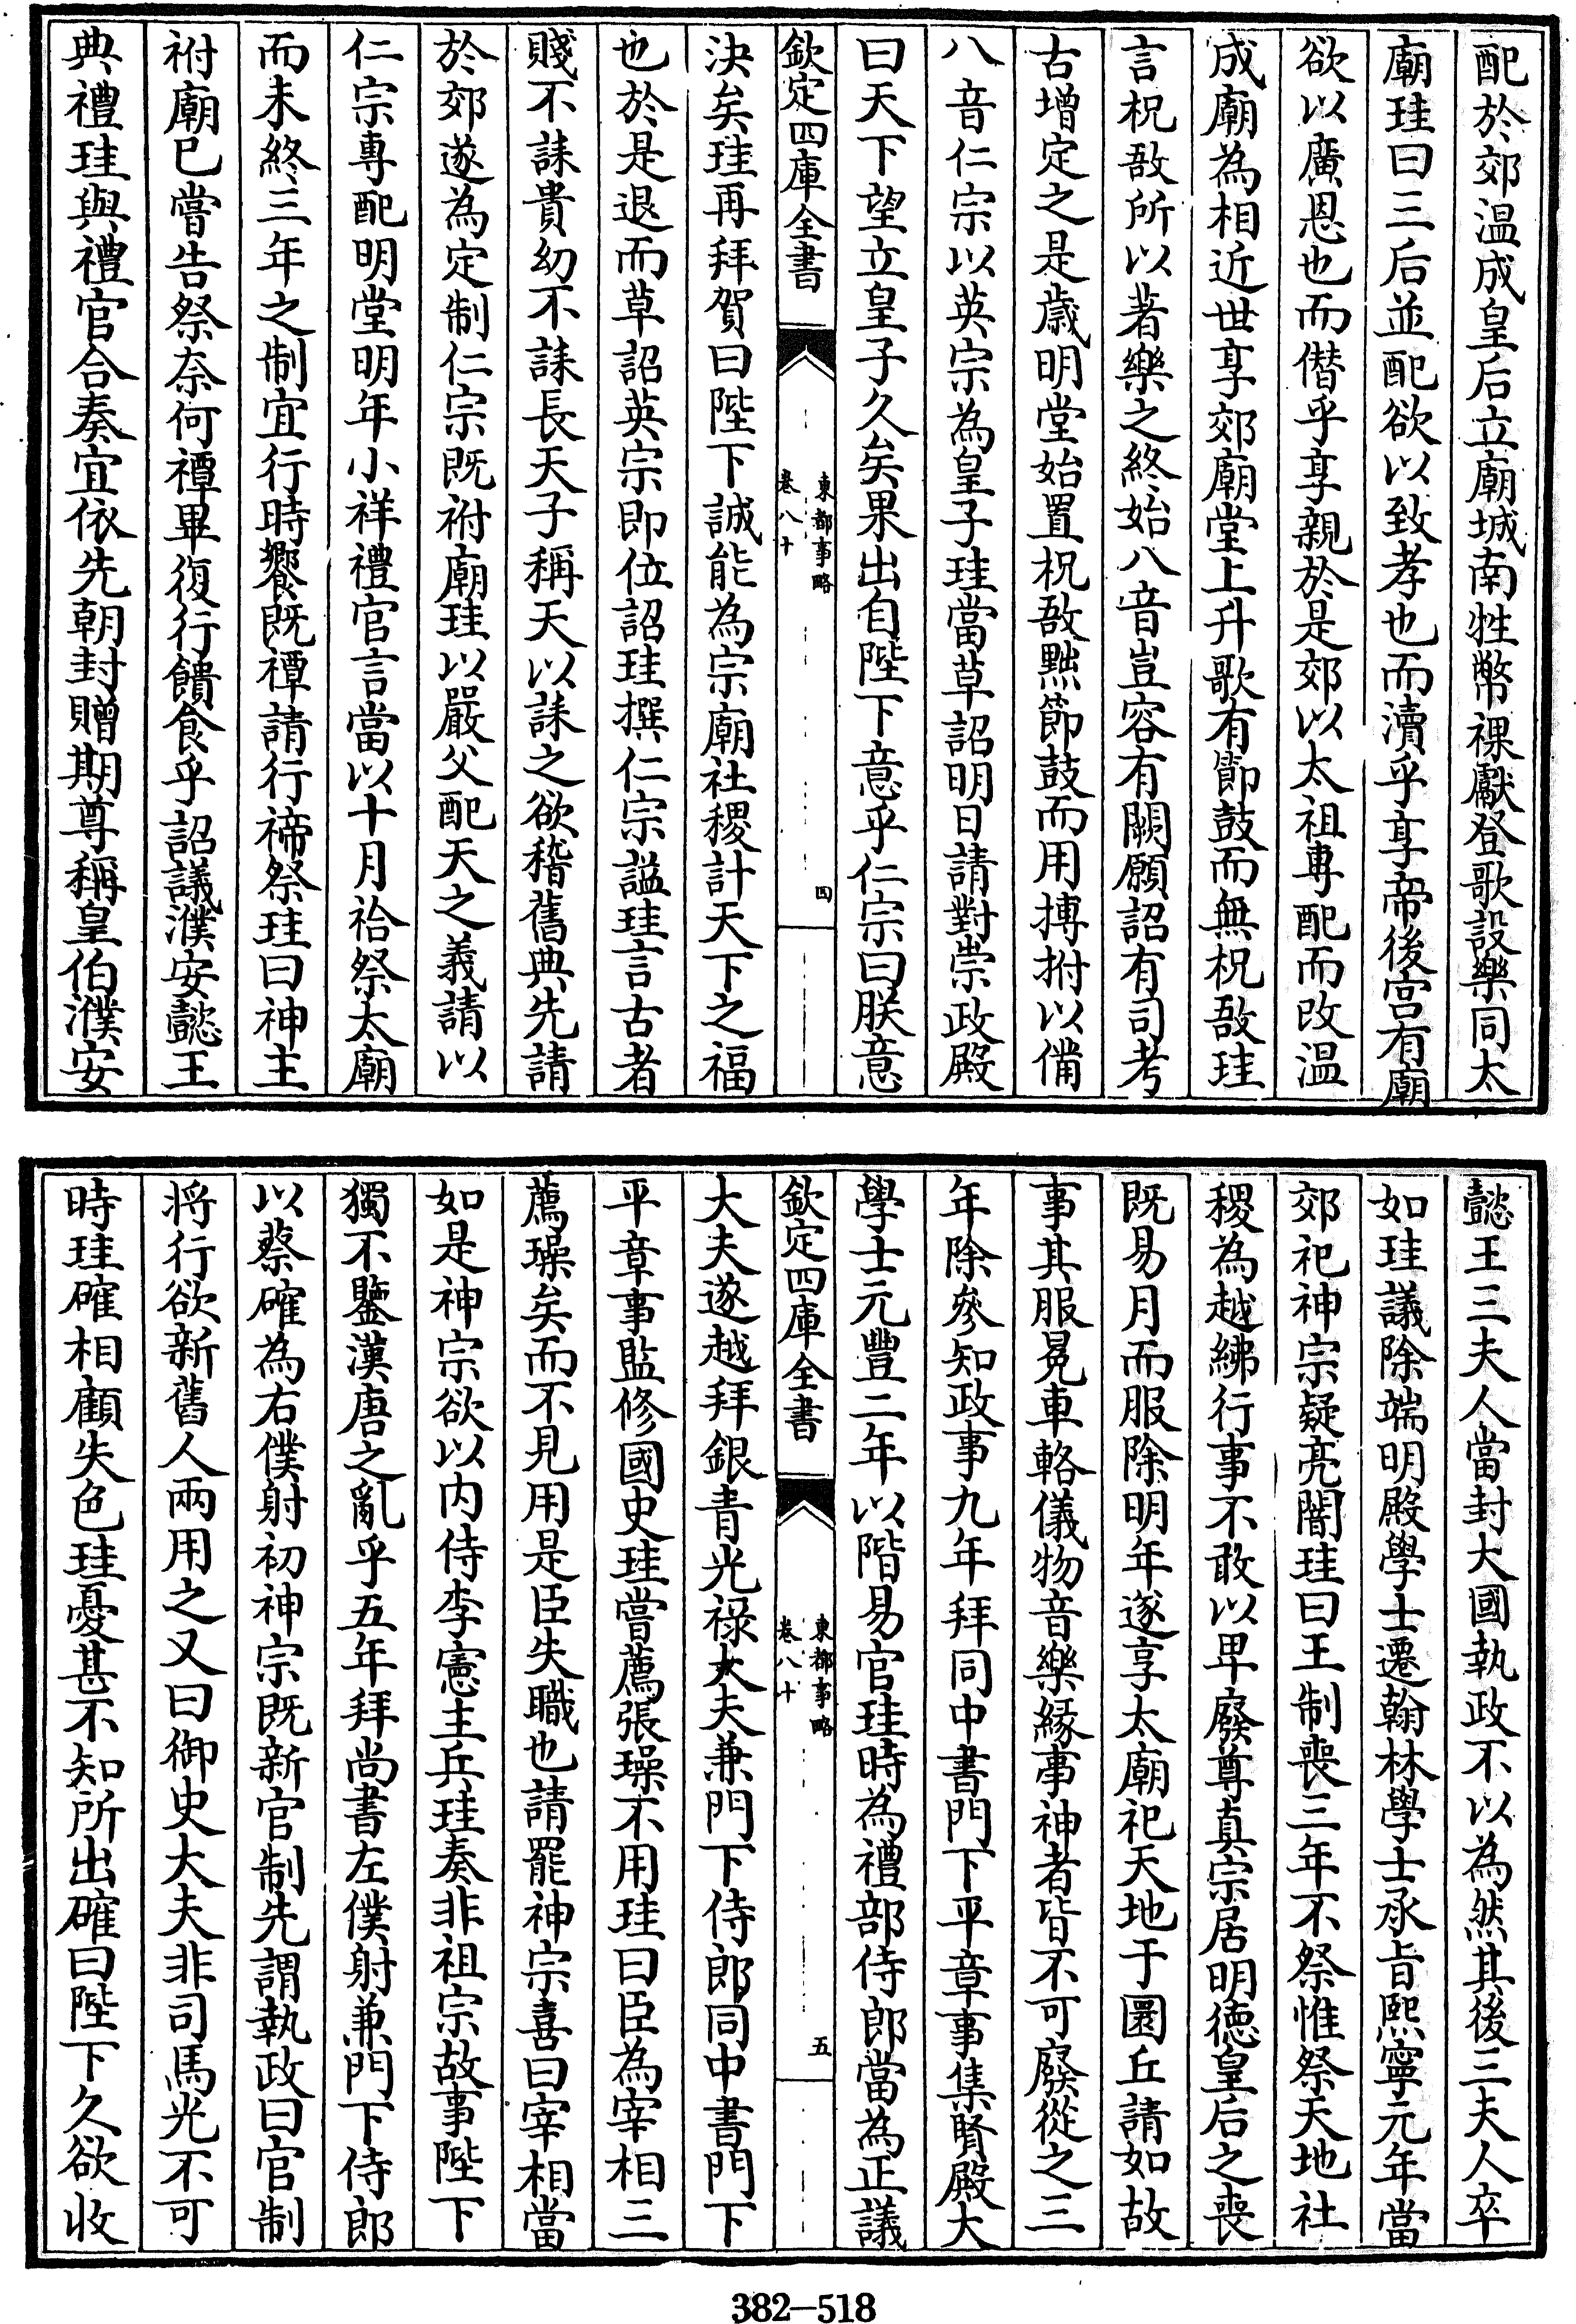 配於郊溫成皇后立廟城南牲幣祼獻登歌設樂同太
廟珪曰三后並配欲以致孝也而瀆乎享帝後宮有廟
欲以廣恩也而僭乎享親於是郊以太祖專配而改溫
成廟為相近世享郊廟堂上升歌有節鼓而無柷敔珪
言柷敔所以著樂之終始八音豈容有闕願詔有司考
古增定之是歲明堂始置柷敔黜節鼓而用搏拊以備
八音仁宗以英宗為皇子珪當草詔明日請對崇政殿
曰天下望立皇子久矣果出自陛下意乎仁宗曰朕意
欽定四庫全書
東都事略
卷八十
四
決矣珪再拜賀曰陛下誠能為宗廟社稷計天下之福
也於是退而草詔英宗即位詔珪撰仁宗諡珪言古者
賤不誄貴幼不誄長天子稱天以誄之欲稽舊典先請
於郊遂為定制仁宗既祔廟珪以嚴父配天之義請以
仁宗專配明堂明年小祥禮官言當以十月祫祭太廟
而未終三年之制宜行時饗既禫請行禘祭珪曰神主
祔廟已嘗告祭奈何禫畢復行饋食乎詔議濮安懿王
典禮珪與禮官合奏宜依先朝封贈期尊稱皇伯濮安
懿王三夫人當封大國執政不以為然其後三夫人卒
如珪議除端明殿學士遷翰林學士承旨熙寧元年當
郊祀神宗疑亮闇珪曰王制喪三年不祭惟祭天地社
稷為越紼行事不敢以卑廢尊真宗居明德皇后之喪
既易月而服除明年遂享太廟祀天地于圜丘請如故
事其服冕車輅儀物音樂緣事神者皆不可廢從之三
年除參知政事九年拜同中書門下平章事集賢殿大
學士元豐二年以階易官珪時為禮部侍郎當為正議
欽定四庫全書
東都事略
卷八十
五
大夫遂越拜銀青光祿大夫兼門下侍郎同中書門下
平章事監修國史珪嘗薦張璪不用珪曰臣為宰相三
薦璪矣而不見用是臣失職也請罷神宗喜曰宰相當
如是神宗欲以內侍李憲主兵珪奏非祖宗故事陛下
獨不鑒漢唐之亂乎五年拜尚書左僕射兼門下侍郎
以蔡確為右僕射初神宗既新官制先謂執政曰官制
將行欲新舊人兩用之又曰御史大夫非司馬光不可
時珪確相顧失色珪憂甚不知所出確曰陛下久欲收
382—518